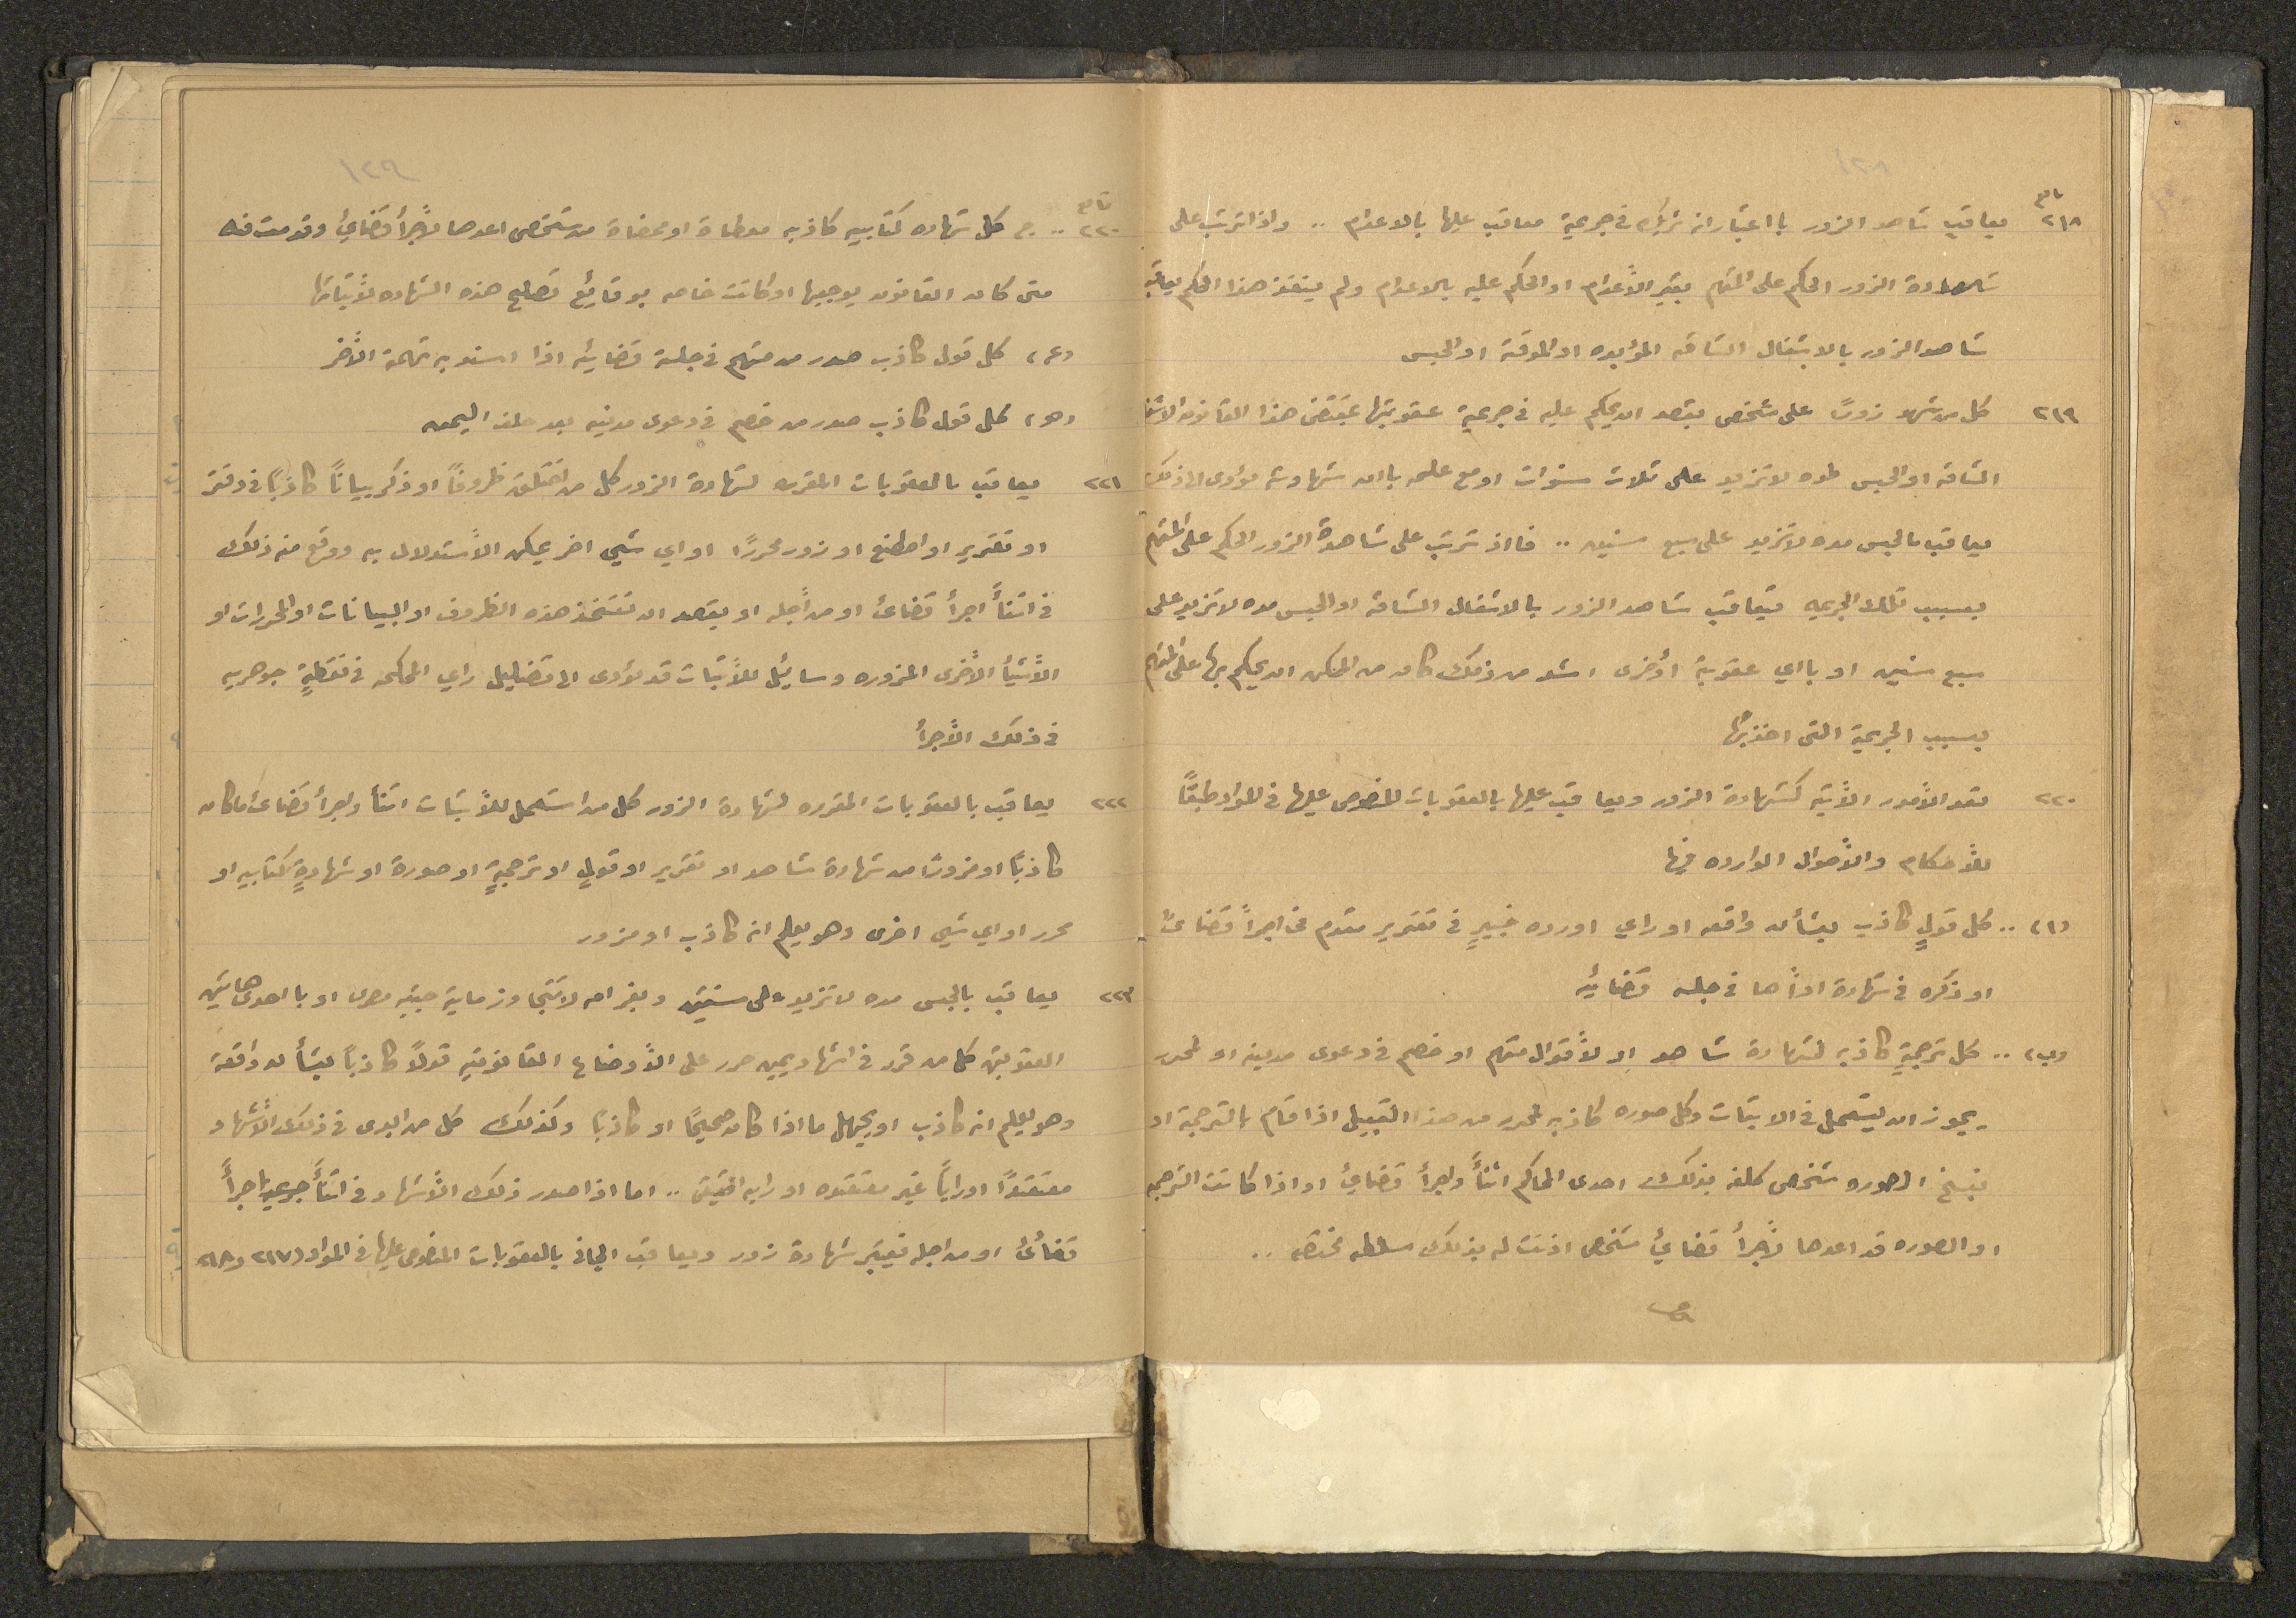 ١٢٨
تابع
٢١٨ يعاقب شاهد الزور با اعتبار انه شريك في جريمة معاقب عليها بالاعدام .. واذا ترتب على
شهادة الزور الحكم على المتهم بغير الأعدام او الحكم عليه بالاعدام ولم ينفذ هذا الحكم يعاقب
شاهد الزور بالاشغال الشاقه المؤبده او المؤقتة او الحبس
٢١٩ كل من شهد زورًا على شخص بقصد ان يحكم عليه في جريمة عقوبتها بمقتضى هذا القانون الاشغال
الشاقه او الحبس لمده لا تزيد على ثلاث سنوات او مع علمه باان شهادته تؤدى الى ذلك
يعاقب بالحبس مده لا تزيد على سبع سنين .. فااذ ترتب على شاهدة الزور الحكم على المتهم
بسبب تلك الجريمه يعاقب شاهد الزور بالاشغال الشاقه او الحبس مده لا تزيد على
سبع سنين او بااي عقوبة أخرى اشد من ذلك كان من الممكن ان يحكم بها على المتهم
بسبب الجريمة التى اخذ بها
٢٢٠ تعد الأمور الأتيه كشهادة الزور ويعاقب عليها بالعقوبات المنصوص عليها في المواد طبقًا
للأحكام والأحوال الوارده فيها
(١) .. كل قولٍ كاذب بشأن واقعه او راي اورده خبيرٍ في تقرير مقدم في اجرأً قضائى
او ذكره في شهادة اداًها في جلسه قضائيه
(ب) .. كل ترجمةٍ كاذبه لشهادة شاهد او لأقوال متهم او خصم في دعوى مدنيه او لمحرر
يجوز ان يستعمل في الاثبات وكل صوره كاذبه لمحرر من هذا القبيل اذا قام بالترجمة او
بنسخ الصوره شخص كلفه بذلك احدى المحاكم اثنأً واجرأ قضائئ او اذا كانت الترجمه
او الصوره قد اعدها لأجرأ قضائئ شخص اذنت له بذلك سلطه مختصه ..
١٢٩
تابع
٢٢٠ .. ج كل شهاده كتابيه كاذبه معطاة او ممضاة من شخص اعدها لأجرأ قضائئ وقدمت فيه
متى كان القانون يوجبها او كانت خاصه بوقائع تصلح هذه الشهاده لأثباتها
(ء) كل قول كاذب صدر من متهم في جلسة قضائيه اذا اسند به تهمة الأخر
(ه) كل قول كاذب صدر من خصم في دعوى مدنيه بعد حلف اليمين
٢٢١ يعاقب بالعقوبات المقرره لشهادة الزور كل من اختلق ظروفًا او ذكر بيانًا كاذبًا في دفتر
او تقرير او اصطنع او زور محررًا او اي شيى اخر يمكن الأستدلال به ووقع منه ذلك
في اثنأً اجرأ قضائئ او من أجله او بقصد ان تتخذ هذه الظروف او البيانات او المحررات او
الأشيأ الأخرى المزوره وسائل للأثبات قد تؤدى الى تضليل راي المحكمه في نقطةٍ جوهريه
في ذلك الأجرأ
٢٢٢ يعاقب بالعقوبات المقرره لشهادة الزور كل من استعمل للأثبات اثنأ واجرأ قضائئ ما كان
كاذبًا او مزورًا من شهادة شاهد او تقرير او قولٍ او ترجمةٍ او صورة او شهادةٍ كتابيه او
محرر او اي شيى اخرى وهو يعلم انه كاذب او مزور
٢٢٣ يعاقب بالحبس مده لا تزيد على سنتين وبغرامه لا تتجاوز مايه جنيه مصرى او بااحدى هاتين
العقوبتين كل من قرر في اشهاد يمين حرر على الأوضاع القانونيه قولًا كاذبًا بشأن واقعة
وهو يعلم انه كاذب او يجهل ما اذا كان صحيحًا او كاذبًا وكذلك كل من ابدى في ذلك الأشهاد
معتقدًا او راياً غير معتقده او رايه الحقيقى .. اما اذا صدر ذلك الأشهاد في اثنأً اجرأً
قضائئ او من اجله فيعتبر شهادة زور ويعاقب الجانى بالعقوبات المنصوص عليها في المواد (٢١٧ و ٢١٨